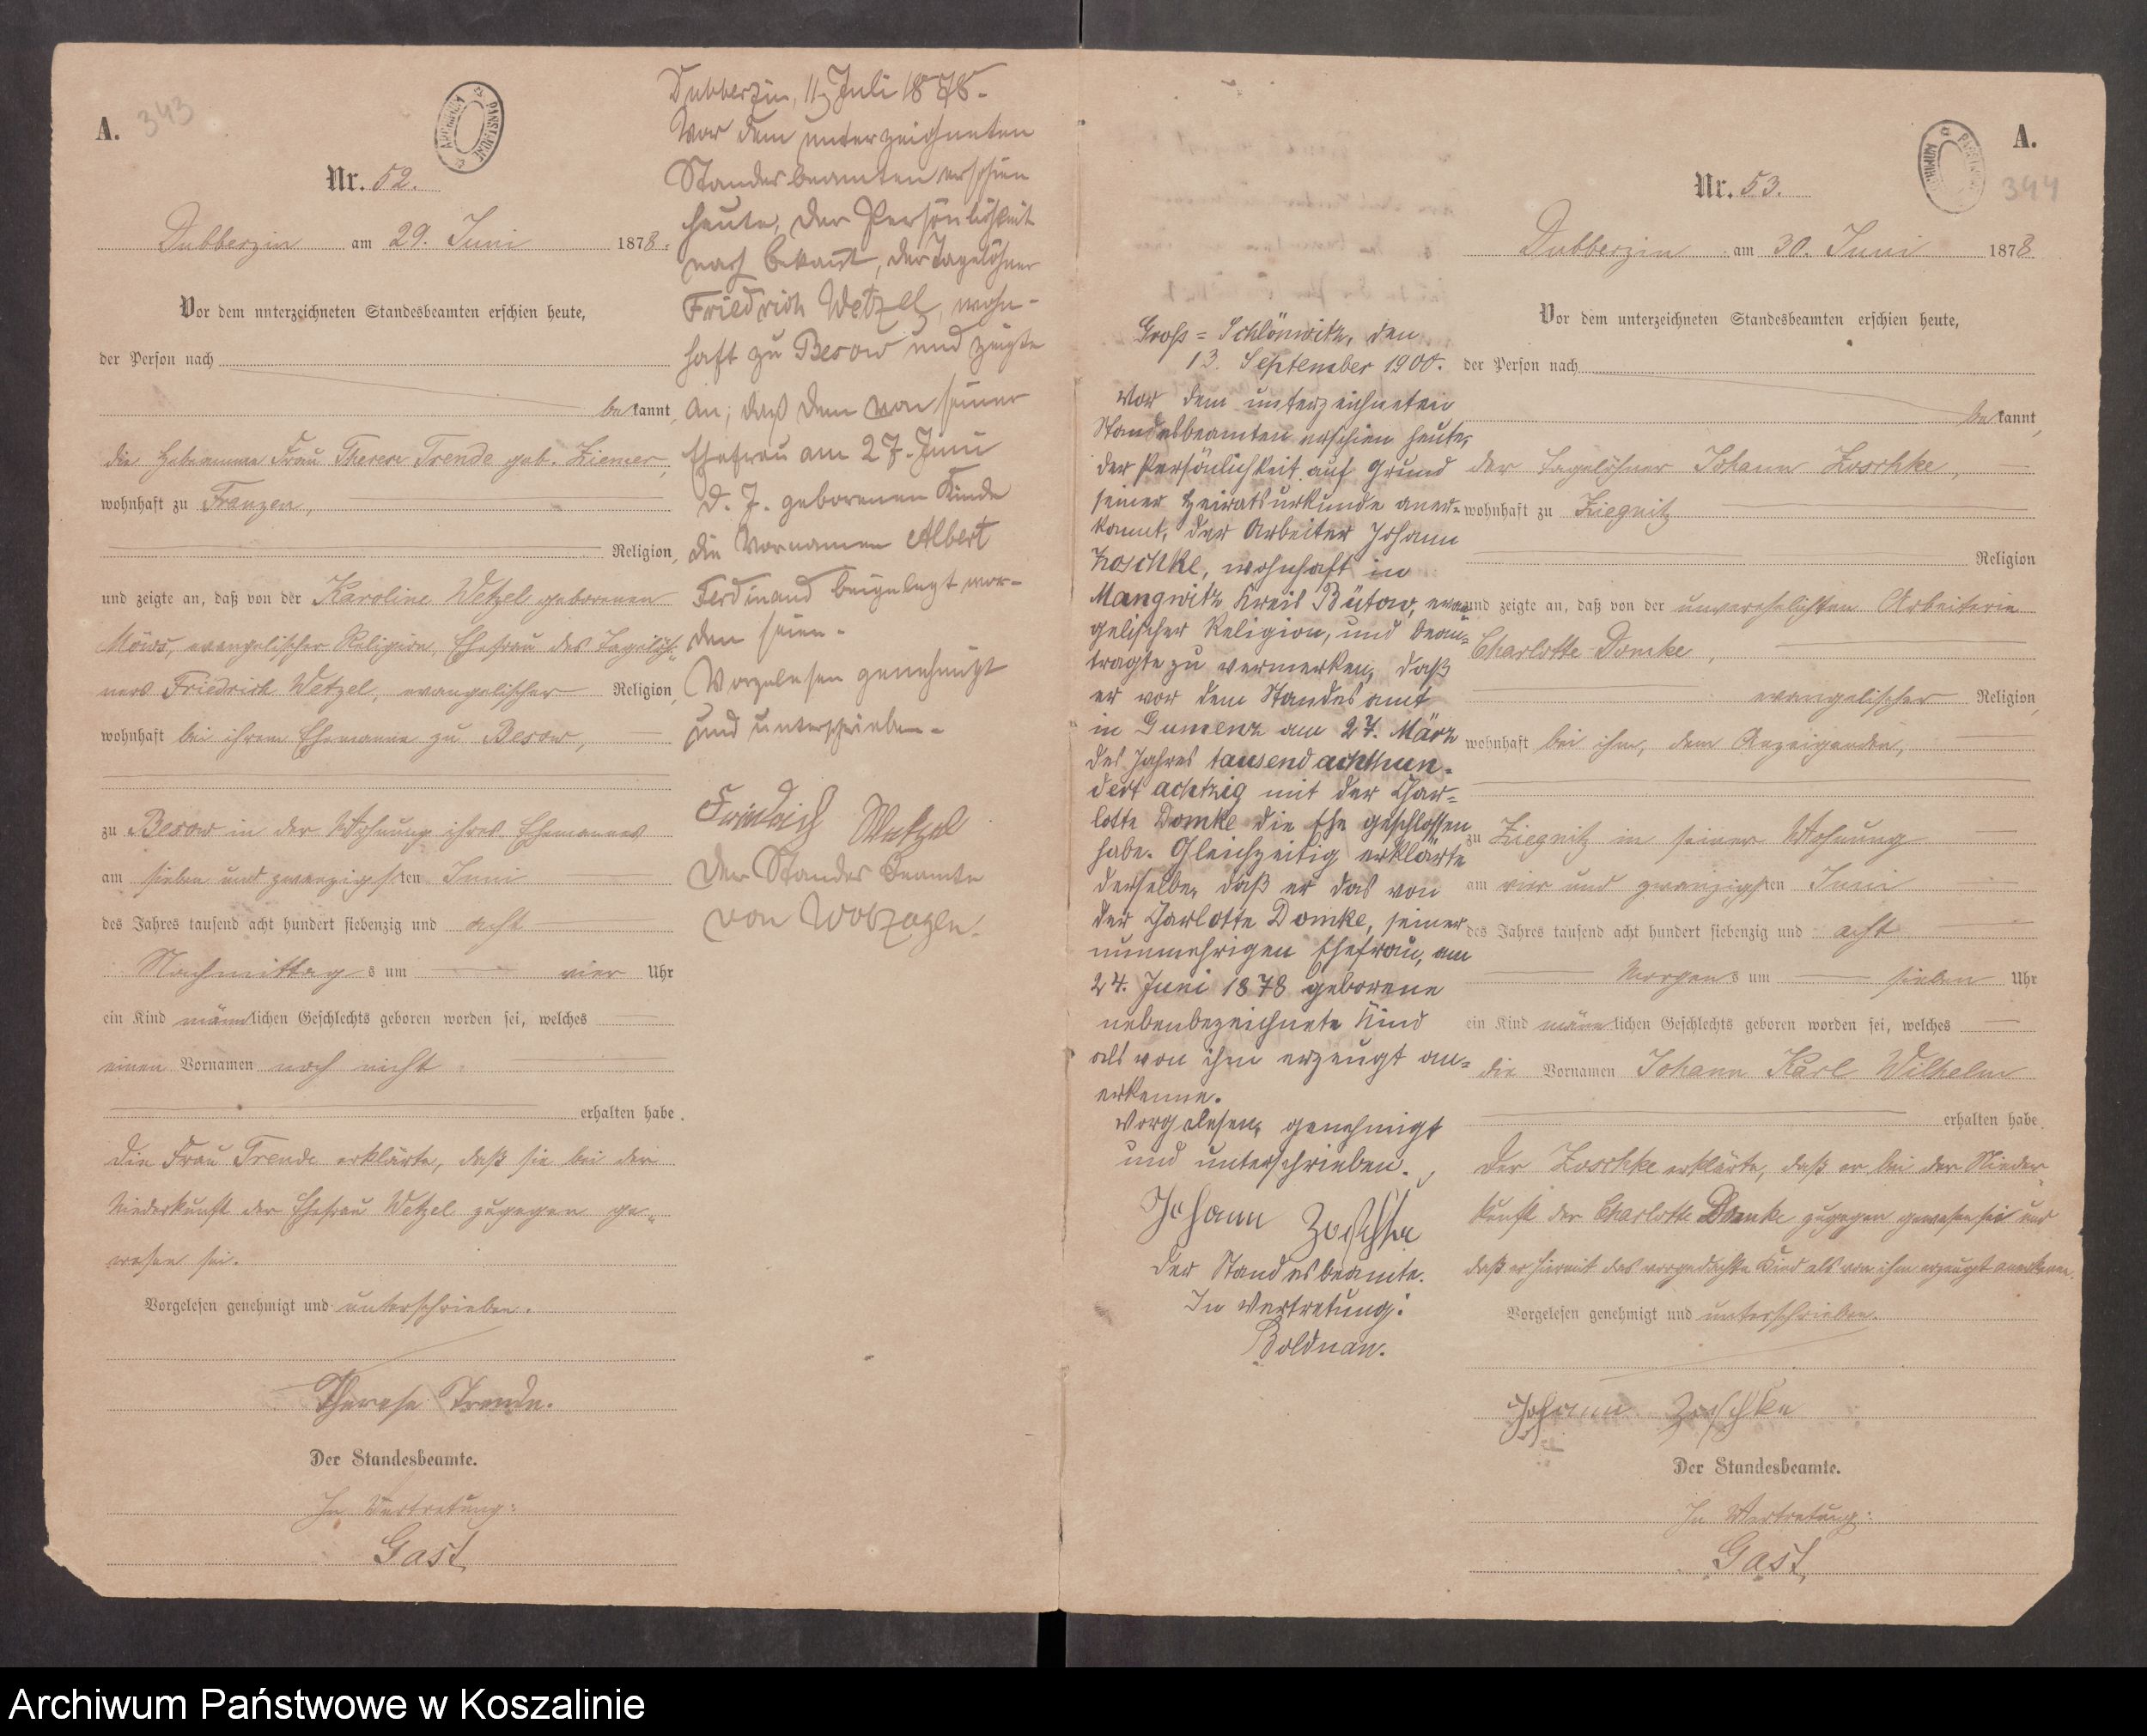 A.
343
ARCHIWUM PAŃSTWOWE
Nr. 52.
Dubberzin am 29. Juni 1878.
Vor dem unterzeichneten Standesbeamten erschien heute,
der Person nach
bekannt,
die Hebamme Frau Therese Trende geb. Ziemer,
wohnhaft zu Franzen,
Religion,
und zeigte an, daß von der Karoline Wetzel geborenen
Möws, evangelischer Religion, Ehefrau des Tagelöh-
ners Friedrich Wetzel, evangelischer Religion,
wohnhaft bei ihrem Ehemanne zu Besow,
zu Besow in der Wohnung ihres Ehemannes
am sieben und zwanzigsten Juni
des Jahres tausend acht hundert siebenzig und acht
Nachmittags um vier Uhr
ein Kind männlichen Geschlechts geboren worden sei, welches
einen Vornamen noch nicht
erhalten habe.
Die Frau Trende erklärte, daß sie bei der
Niederkunft der Ehefrau Wetzel zugegen ge-
wesen sei.
Vorgelesen genehmigt und unterschrieben.
Therese Trende.
Der Standesbeamte.
In Vertretung:
Gast
Dubberzin, 11 Juli 1878.
Vor dem unterzeichneten
Standesbeamten erschien
heute, der Persönlichkeit
nach bekannt, der Tagelöhner
Friedrich Wetzel, wohn-
haft zu Besow und zeigte
an, daß dem von seiner
Ehefrau am 27. Juni
d. J. geborenen Kinde
die Vornamen Albert
Ferdinand beigelegt wor-
den seien.
Vorgelesen genehmigt
und unterschrieben.
Friedrich Wetzel
Der Standes Beamte
von Wolzogen.
Groß-Schlönwitz, den
13. September 1900.
Vor dem unterzeichneten
Standesbeamten erschien heute,
der Persönlichkeit auf Grund
seiner Heiratsurkunde aner-
kannt, der Arbeiter Johann
Zoschke, wohnhaft in
Mangwitz, Kreis Bütow, evan-
gelischer Religion, und bean-
tragte zu vermerken, daß
er vor dem Standesamt
in Gumenz am 27. März
des Jahres tausend achthun-
dert achtzig mit der Char-
lotte Domke die Ehe geschlossen
habe. Gleichzeitig erklärte
derselbe, daß er das von
der Charlotte Domke, seiner
nunmehrigen Ehefrau, am
24. Juni 1878 geborene
nebenbezeichnete Kind
als von ihm erzeugt an-
erkenne.
Vorgelesen, genehmigt
und unterschrieben.
Johann Zoschke
Der Standesbeamte.
In Vertretung:
Boldnan.
A.
344
ARCHIWUM PAŃSTWOWE
Nr. 53.
Dubberzin am 30. Juni 1878
Vor dem unterzeichneten Standesbeamten erschien heute,
der Person nach
bekannt,
der Tagelöhner Johann Zoschke,
wohnhaft zu Ziegnitz
Religion
und zeigte an, daß von der unverehelichten Arbeiterin
Charlotte Domke,
evangelischer Religion,
wohnhaft bei ihm, dem Anzeigenden,
zu Ziegnitz in seiner Wohnung
am vier und zwanzigsten Juni
des Jahres tausend acht hundert siebenzig und acht
Morgens um sieben Uhr
ein Kind männlichen Geschlechts geboren worden sei, welches
die Vornamen Johann Karl Wilhelm
erhalten habe.
Der Zoschke erklärte, daß er bei der Nieder-
kunft der Charlotte Domke zugegen gewesen sei und
daß er hiermit das vorgedachte Kind als von ihm erzeugt anerkenne.
Vorgelesen genehmigt und unterschrieben.
Johann Zoschke
Der Standesbeamte.
In Vertretung:
Gast
Archiwum Państwowe w Koszalinie